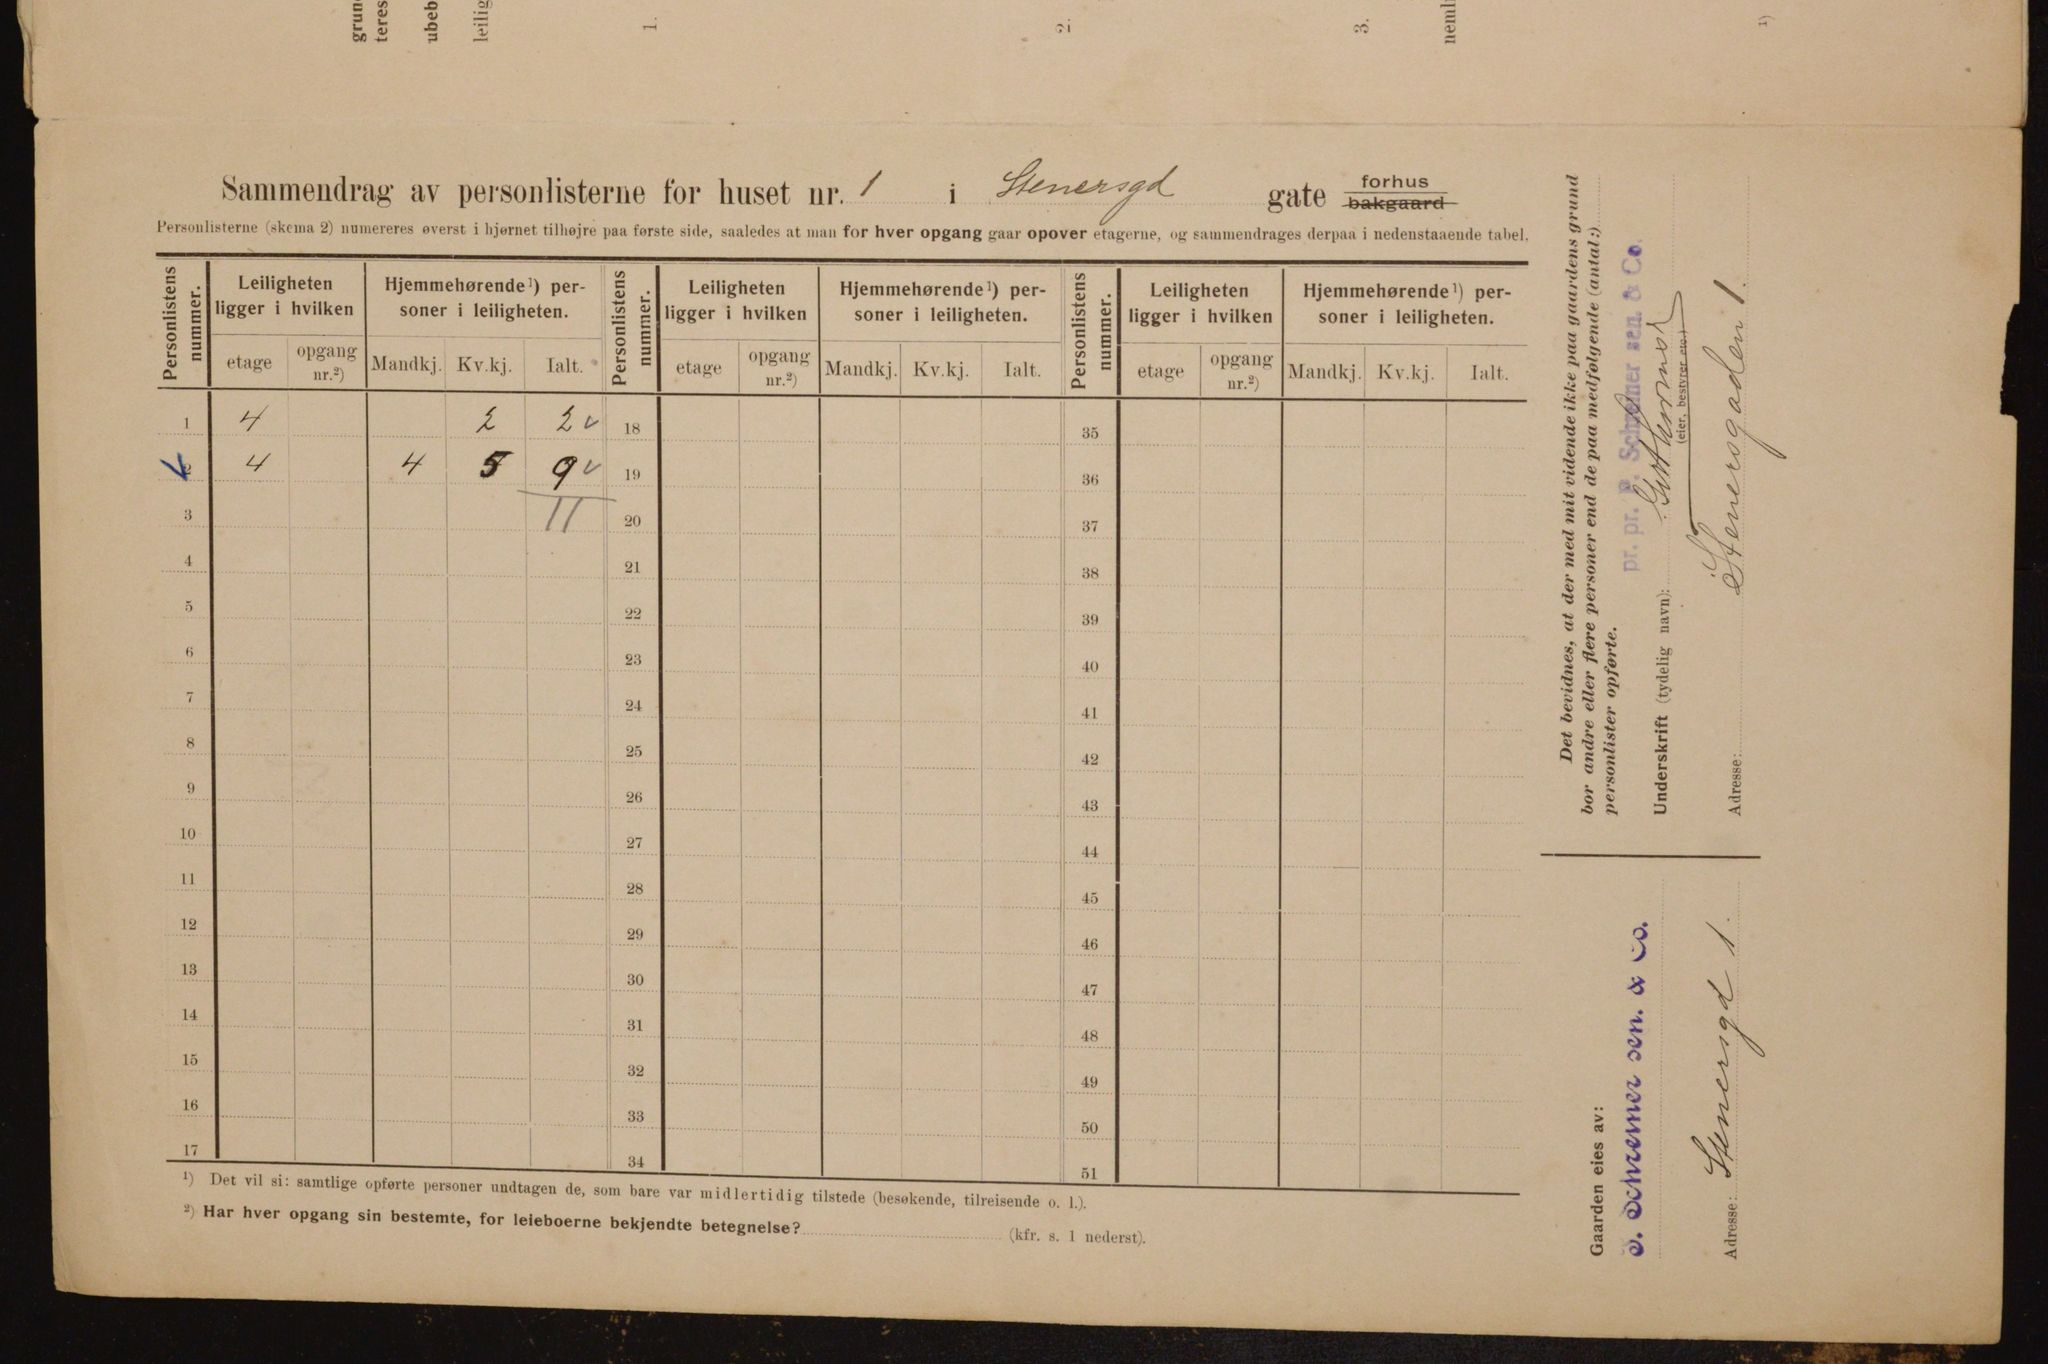 grun
teres
ubeb
leilig
1.
2.
3.
neml
1)
Sammendrag av personlisterne for huset nr. 1 i Stenersgd gate forhus bakgaard
Personlisterne (skema 2) numereres øverst i hjørnet tilhøjre paa første side, saaledes at man for hver opgang gaar opover etagerne, og sammendrages derpaa i nedenstaaende tabel.
Personlistens nummer. Leiligheten ligger i hvilken Hjemmehørende ¹) personer i leiligheten. Personlistens nummer. Leiligheten ligger i hvilken Hjemmehørende ¹) personer i leiligheten. Personlistens nummer. Leiligheten ligger i hvilken Hjemmehørende ¹) personer i leiligheten.
etage opgang nr.²) Mandkj. Kv.kj. Ialt. etage opgang nr.²) Mandkj. Kv.kj. Ialt. etage opgang nr.²) Mandkj. Kv.kj. Ialt.
1 4 2 2 ✓ 18 35
2 4 4 5 9 ✓ 19 36
3 11 20 37
4 21 38
5 22 39
6 23 40
7 24 41
8 25 42
9 26 43
10 27 44
11 28 45
12 29 46
13 30 47
14 31 48
15 32 49
16 33 50
17 34 51
¹) Det vil si: samtlige opførte personer undtagen de, som bare var midlertidig tilstede (besøkende, tilreisende o. l.).
²) Har hver opgang sin bestemte, for leieboerne bekjendte betegnelse? (kfr. s. 1 nederst).
Det bevidnes, at der med mit vidende ikke paa gaardens grund
bor andre eller flere personer end de paa medfølgende (antal:)
personlister opførte.
pr. pr. P. Schreiner sen. & Co.
Underskrift (tydelig navn):
(eier, bestyrer etc.)
Adresse: Stenersgaden 1.
Gaarden eies av:
P. Schreiner sen. & Co.
Adresse: Stenersgd 1.